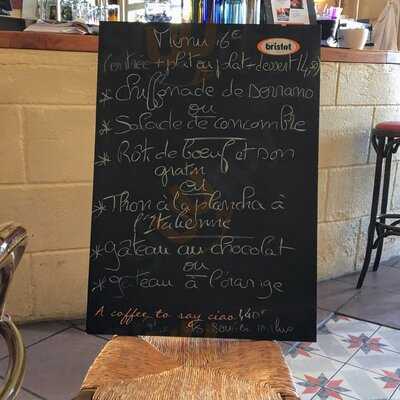 Menu 16€
bristot
(entrée + plat ou plat + dessert 14,50)
* Chiffonade de Serrano
ou
* Salade de concombre
* Rôti de bœuf et son
gratin
ou
* Thon à la plancha à
l'Italienne
* gâteau au chocolat
ou
* gateau à l'orange
A coffee to say ciao 1,40€